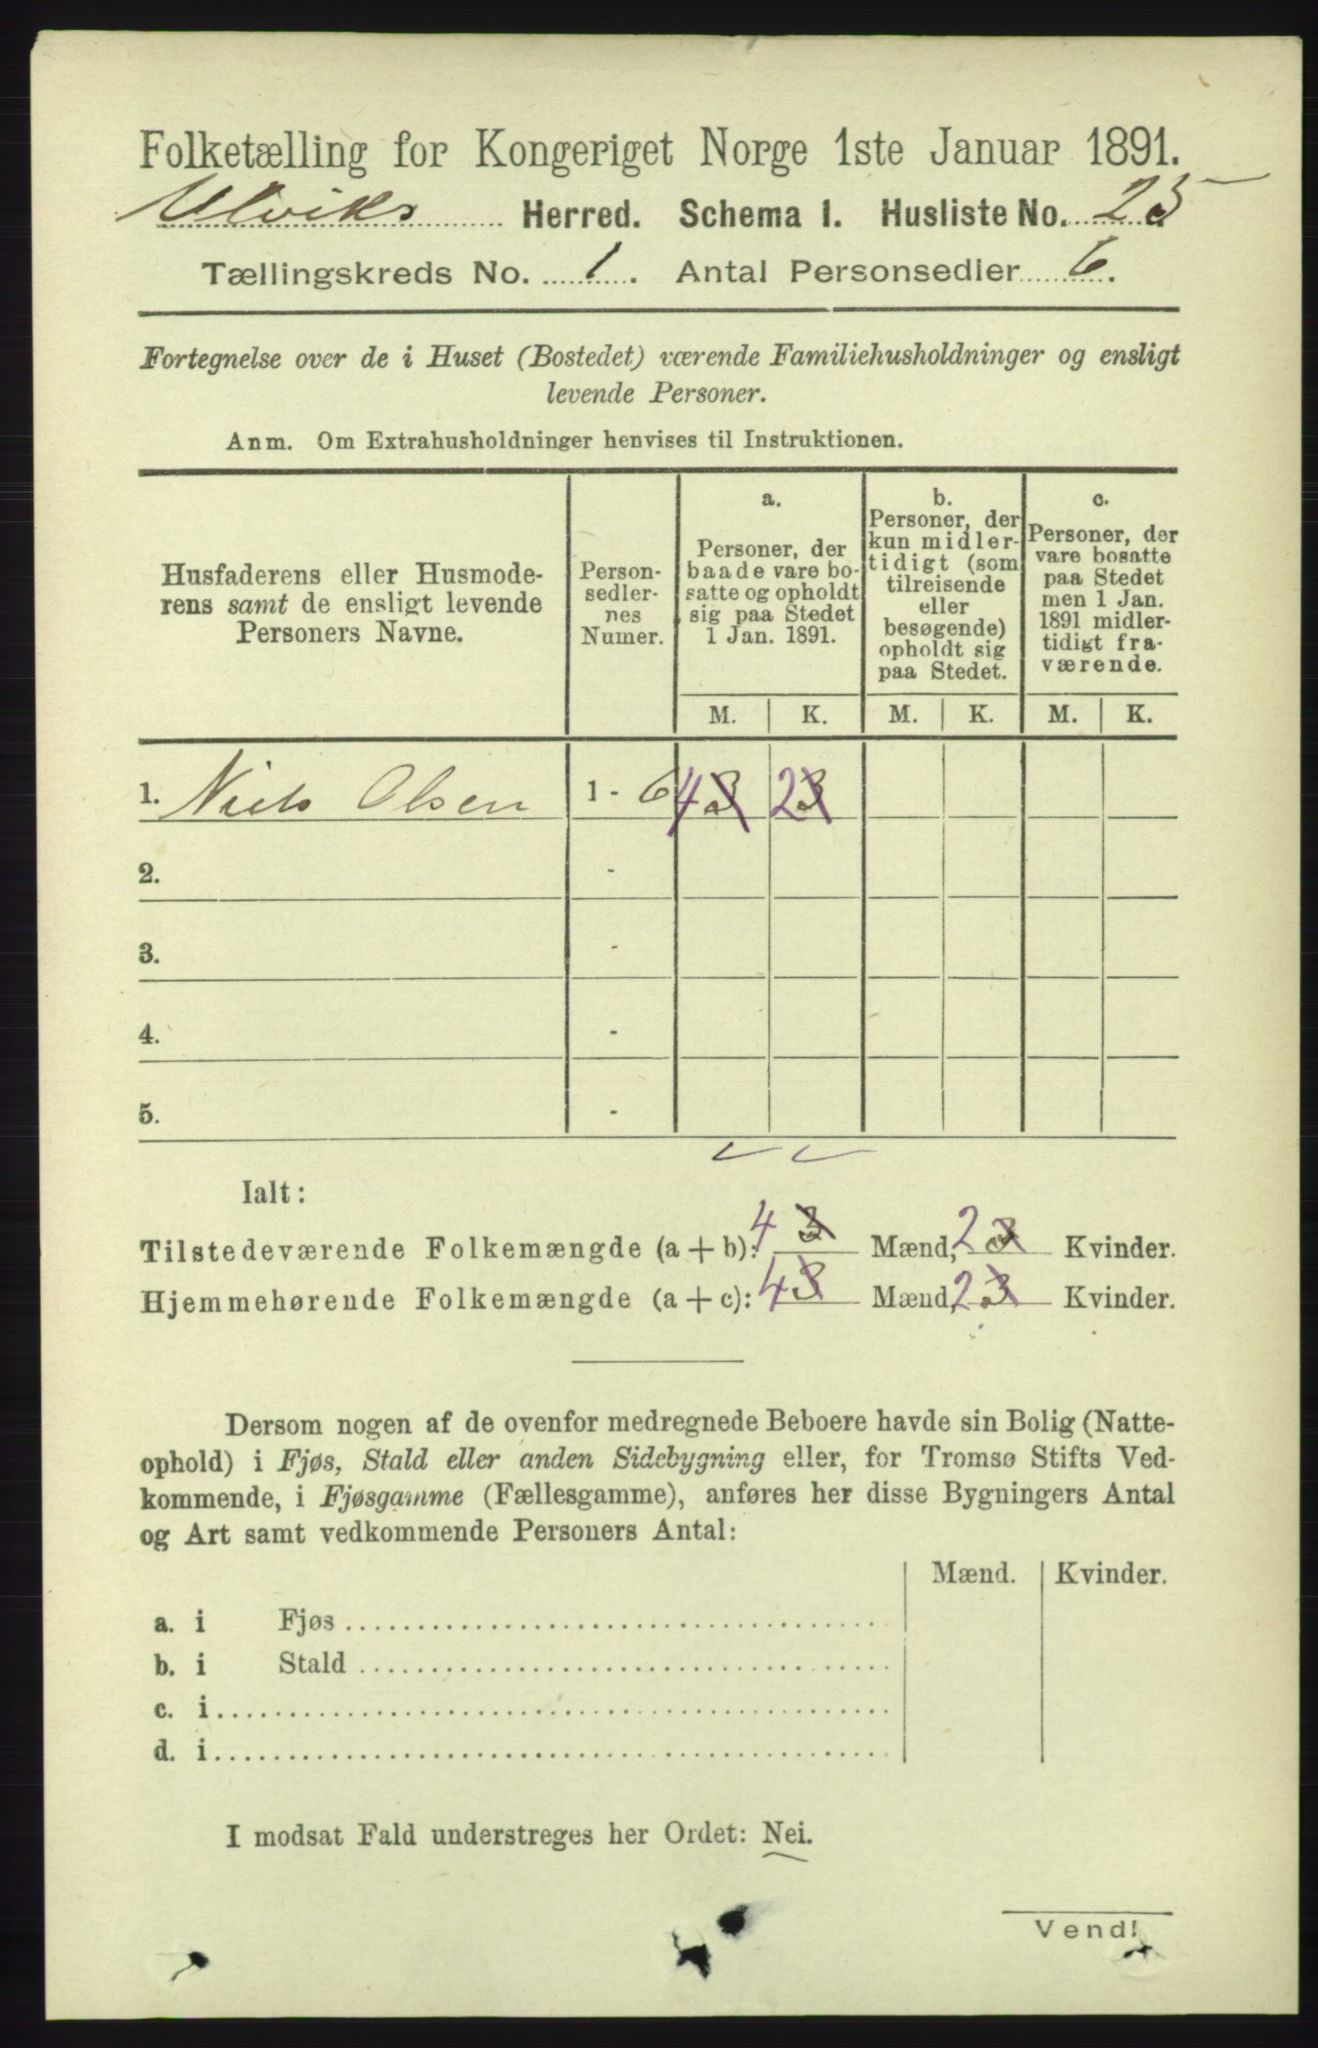 Folketælling for Kongeriget Norge 1ste Januar 1891.
Ulviks Herred. Schema 1. Husliste No. 25
Tællingskreds No. 1. Antal Personsedler 6.
Fortegnelse over de i Huset (Bostedet) værende Familiehusholdninger og ensligt
levende Personer.
Anm. Om Extrahusholdninger henvises til Instruktionen.
Husfaderens eller Husmode-
rens samt de ensligt levende
Personers Navne.
Person-
sedler-
nes
Numer.
a.
Personer, der
baade vare bo-
satte og opholdt
sig paa Stedet
1 Jan. 1891.
b.
Personer, der
kun midler-
tidigt (som
tilreisende
eller
besøgende)
opholdt sig
paa Stedet.
c.
Personer, der
vare bosatte
paa Stedet
men 1 Jan.
1891 midler-
tidigt fra-
værende.
M. K. M. K. M. K.
1. Niels Olsen 1 - 6 4 3 2 3
2. -
3. -
4. -
5. -
Ialt:
Tilstedeværende Folkemængde (a + b): 4 3 Mænd, 2 3 Kvinder.
Hjemmehørende Folkemængde (a + c): 4 3 Mænd, 2 3 Kvinder.
Dersom nogen af de ovenfor medregnede Beboere havde sin Bolig (Natte-
ophold) i Fjøs, Stald eller anden Sidebygning eller, for Tromsø Stifts Ved-
kommende, i Fjøsgamme (Fællesgamme), anføres her disse Bygningers Antal
og Art samt vedkommende Personers Antal:
Mænd. Kvinder.
a. i Fjøs
b. i Stald
c. i
d. i
I modsat Fald understreges her Ordet: Nei.
Vend!